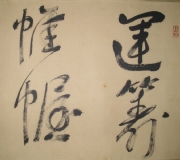 運籌
帷幄